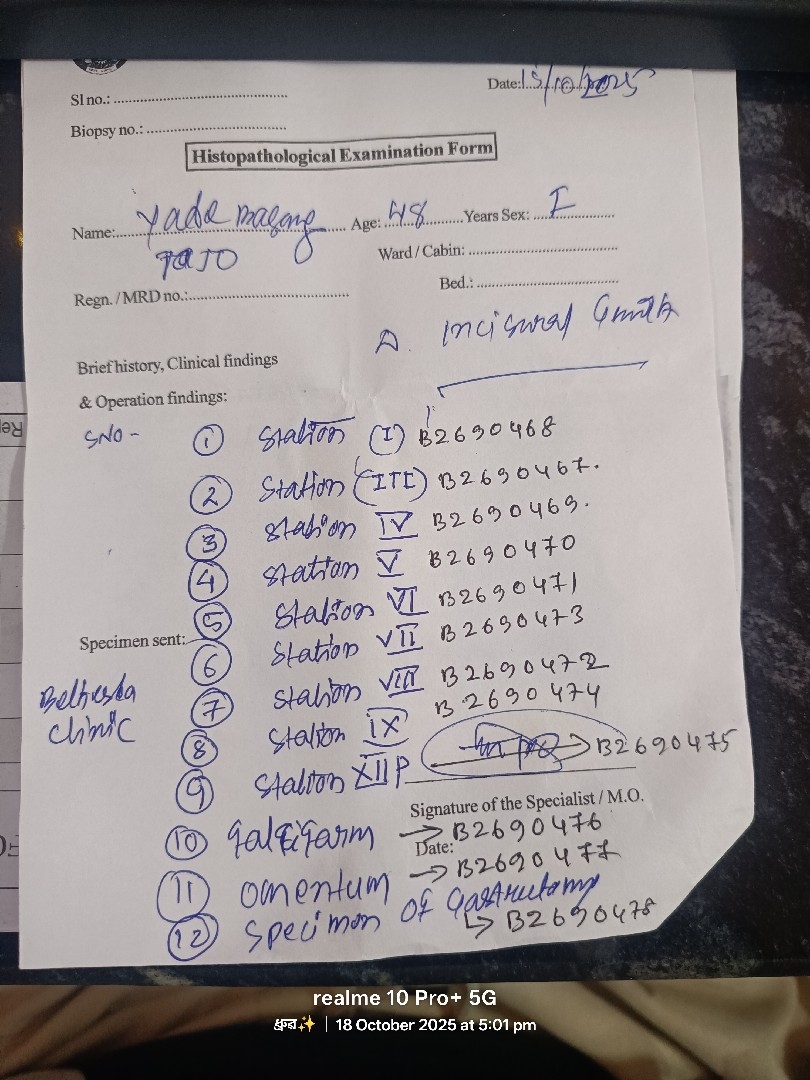 Date: 15/10/2025
Sl no.:
Biopsy no.:
Histopathological Examination Form
Name: Yade Age: 48 Years Sex: F
Ward / Cabin:
Regn. / MRD no.: Bed.:
Incisural Growth
Brief history, Clinical findings
& Operation findings:
SNO - 1 Station (I) B2690468
2 Station (III) B2690467.
3 Station IV B2690469.
4 Station V B2690470
5 Station VI B2690471
Specimen sent: 6 Station VII B2690473
7 Station VIII B2690472
Bethesda Clinic
8 Station IX B2690474
9 Station XII P → B2690475
Signature of the Specialist / M.O.
10 falcifarm → B2690476
Date:
11 omentum → B2690477
12 specimen of Gastrectomy
↳ B2690478
realme 10 Pro+ 5G
ধ্রুব✨ | 18 October 2025 at 5:01 pm